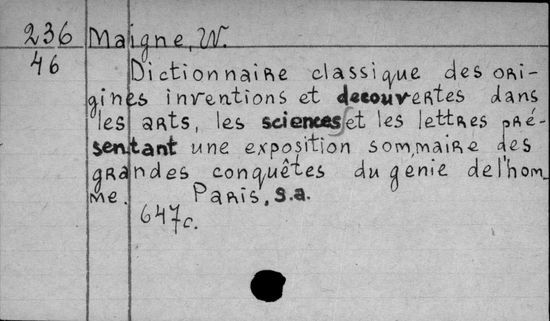 236 Maigne, W.
46 Dictionnaire classique des ori-
gines inventions et decouvertes dans
les arts, les sciences et les lettres pré-
sentant une exposition sommaire des
grandes conquêtes du genie de l'hom-
me. Paris, s.a.
647c.